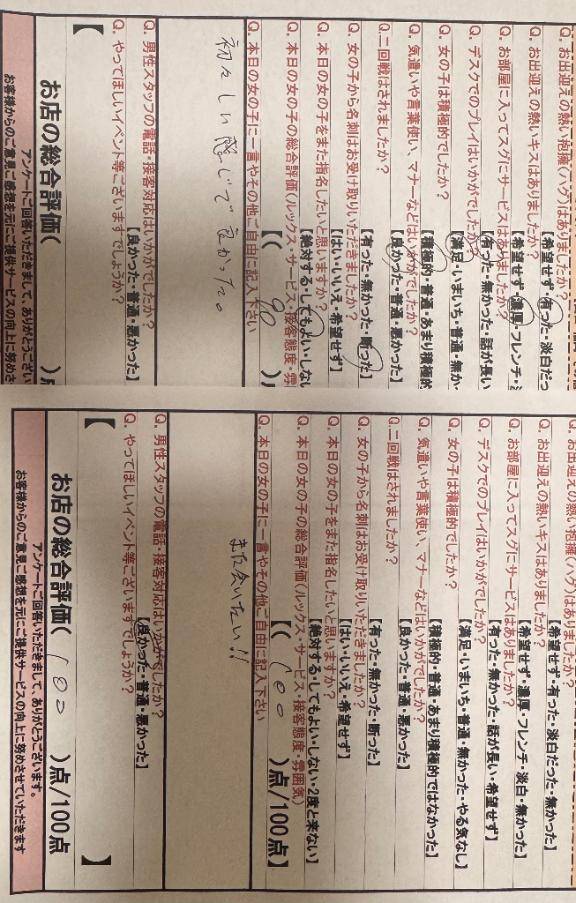 Q. お出迎えの熱い抱擁(ハグ)はありましたか?
【希望せず・有った・淡白だっ
Q. お出迎えの熱いキスはありましたか?
希望せず・濃厚・フレンチ・
Q. お部屋に入ってスグにサービスはありましたか?
【有った・無かった・話が長い
Q. デスクでのプレイはいかがでしたか?
【満足・いまいち・普通・無か
Q. 女の子は積極的でしたか?
【積極的・普通・あまり積極的
Q. 気遣いや言葉使い、マナーなどはいかがでしたか?
【良かった・普通・悪かった】
Q. 二回戦はされましたか?
【有った・無かった・断った】
Q. 女の子から名刺はお受け取りいただきましたか?
【はい・いいえ・希望せず】
Q. 本日の女の子をまた指名したいと思いますか?
【絶対する・してもよい・しな
Q. 本日の女の子の総合評価(ルックス・サービス・接客態度・雰
【( 90 )
Q. 本日の女の子に一言やその他ご自由に記入下さい
初々しい感じで良かった。
Q. 男性スタッフの電話・接客対応はいかがでしたか?
【良かった・普通・悪かった】
Q. やってほしいイベント等ございますでしょうか?
【
お店の総合評価( )
アンケートご回答いただきまして、ありがとうござい
お客様からのご意見ご感想を元にご提供サービスの向上に努めさ
Q. お出迎えの熱い抱擁(ハグ)はありましたか?
【希望せず・有った・淡白だった・無かった】
Q. お出迎えの熱いキスはありましたか?
【希望せず・濃厚・フレンチ・淡白・無かった】
Q. お部屋に入ってスグにサービスはありましたか?
【有った・無かった・話が長い・希望せず】
Q. デスクでのプレイはいかがでしたか?
【満足・いまいち・普通・無かった・やる気なし】
Q. 女の子は積極的でしたか?
【積極的・普通・あまり積極的ではなかった】
Q. 気遣いや言葉使い、マナーなどはいかがでしたか?
【良かった・普通・悪かった】
Q. 二回戦はされましたか?
【有った・無かった・断った】
Q. 女の子から名刺はお受け取りいただきましたか?
【はい・いいえ・希望せず】
Q. 本日の女の子をまた指名したいと思いますか?
【絶対する・してもよい・しない・2度と来ない】
Q. 本日の女の子の総合評価(ルックス・サービス・接客態度・雰囲気)
【( 100 )点/100点】
Q. 本日の女の子に一言やその他ご自由に記入下さい
また会いたい!!
Q. 男性スタッフの電話・接客対応はいかがでしたか?
【良かった・普通・悪かった】
Q. やってほしいイベント等ございますでしょうか?
【 】
お店の総合評価( 100 )点/100点
アンケートご回答いただきまして、ありがとうございます。
お客様からのご意見ご感想を元にご提供サービスの向上に努めさせていただきます